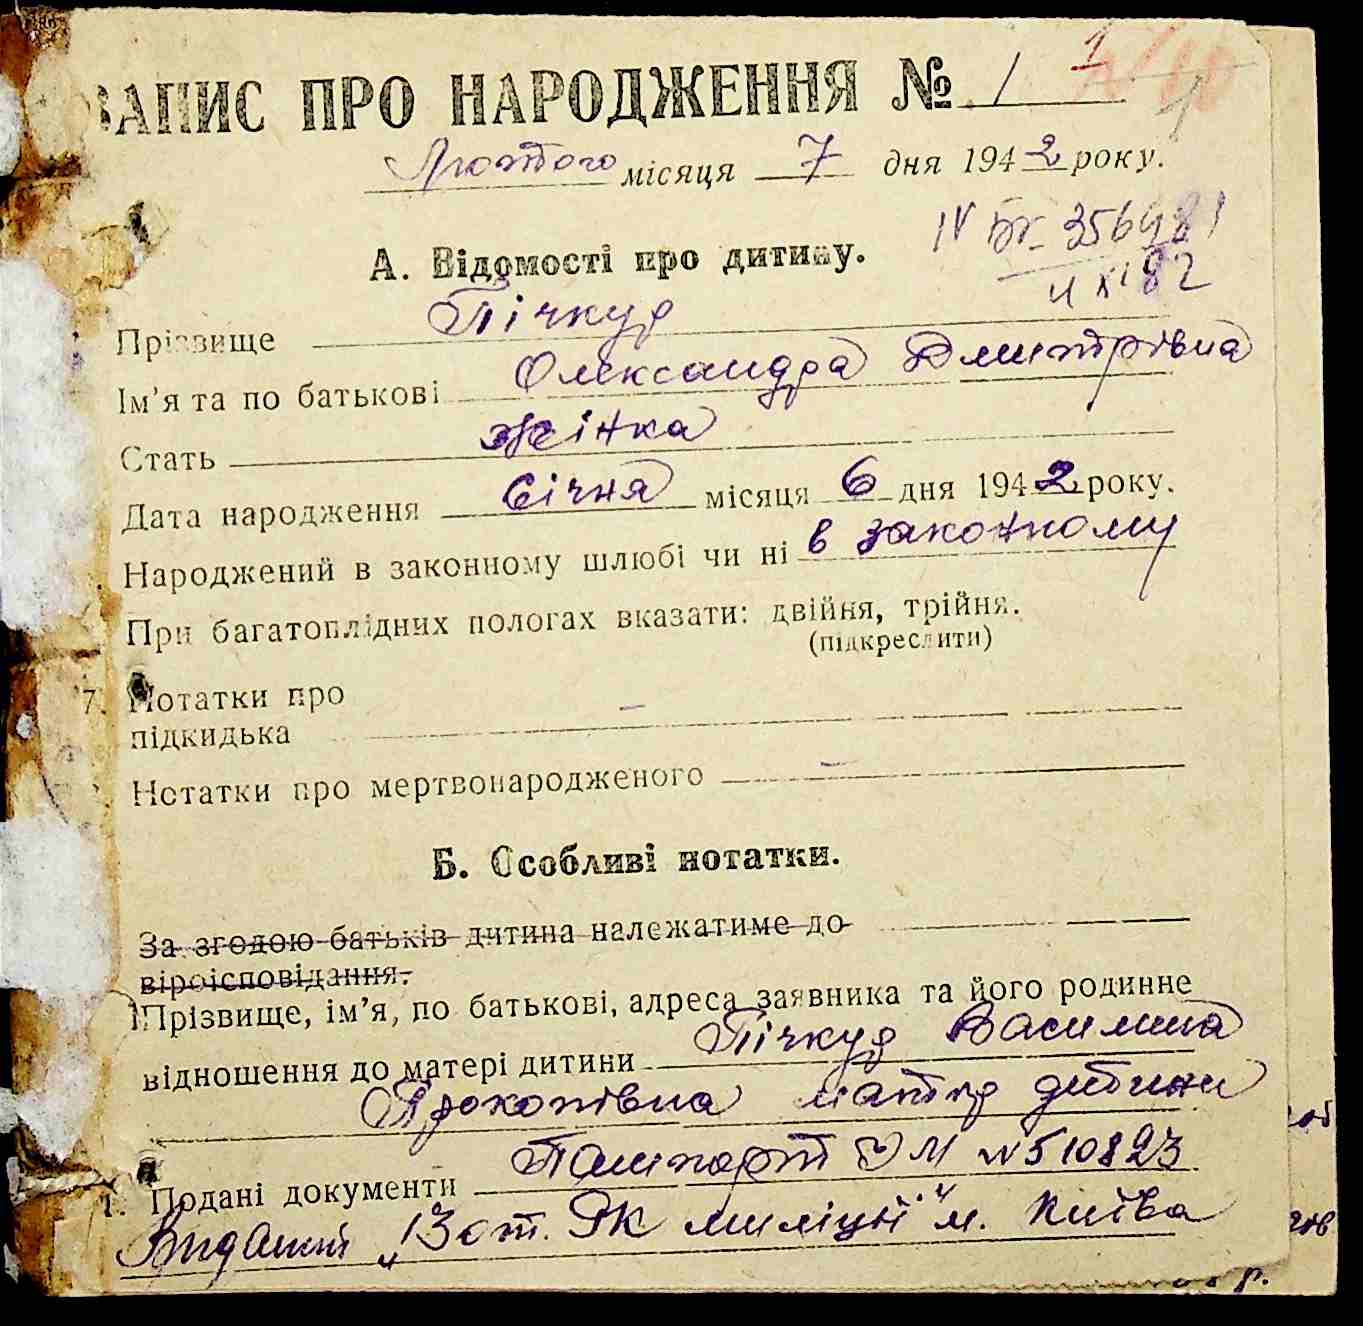 ЗАПИС ПРО НАРОДЖЕННЯ № 1
Лютого місяця 7 дня 1942 року.
IV БК 356481
4 XI 82
А. Відомості про дитину.
Прізвище Пічкур
Ім'я та по батькові Олександра Дмитрівна
Стать жінка
Дата народження Січня місяця 6 дня 1942 року.
Народжений в законному шлюбі чи ні в законному
При багатоплідних пологах вказати: двійня, трійня.
(підкреслити)
7. Нотатки про
підкидька –
Нотатки про мертвонародженого –
Б. Особливі нотатки.
За згодою батьків дитина належатиме до
віроісповідання.
Прізвище, ім'я, по батькові, адреса заявника та його родинне
відношення до матері дитини Пічкур Василина
Прокопівна матір дитини
1. Подані документи Пашпорт № 510823
Виданий „13 от. РК міліції" м. Київа